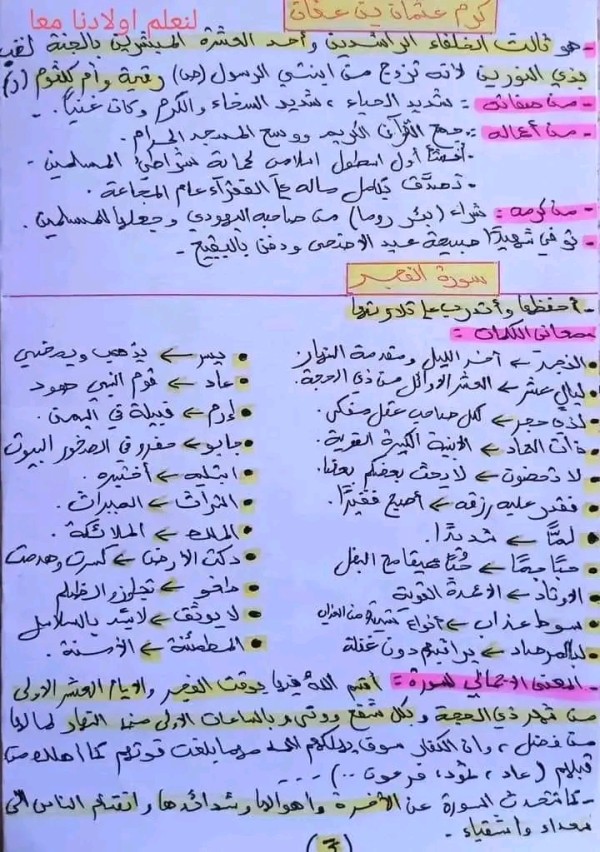 لنعلم اولادنا معا
كرم عثمان بن عفان
- هو ثالث الخلفاء الراشدين وأحد العشرة المبشرين بالجنة لقب
بذي النورين لأنه تزوج من ابنتي الرسول (ص) رقية وأم كلثوم (ر)
- من صفاته : شديد الحياء ، شديد السخاء والكرم وكان غنيا .
- من أعماله : جمع القرآن الكريم ووسع المسجد الحرام .
. أنشأ أول اسطول اسلامي لحماية شواطئ المسلمين -
. تصدق بكامل ماله على الفقراء عام المجاعة .
- من كرمه : شراء (بئر روما) من صاحبه اليهودي وجعلها للمسلمين .
- توفي شهيدًا صبيحة عيد الأضحى ودفن بالبقيع -
سورة الفجر
- أحفظها وأتدرب على تلاوتها
معاني الكلمات :
الفجر ← آخر الليل ومقدمة النهار.
ليال عشر ← العشر الأوائل من ذي الحجة .
لذي حجر ← لكل صاحب عقل مفكر .
ذات العماد ← الأبنية الكبيرة القوية .
لا تحضون ← لا يحث بعضكم بعضا.
فقدر عليه رزقه ← أصبح فقيرًا.
لمًّا ← شديدًا.
حبًا جمًا ← حُبًّا عميقا مع البخل
الأوتاد ← الأعمدة القوية
سوط عذاب ← أنواع كثيرة من العذاب
لبالمرصاد ← يراقبهم دون غفلة
يسر ← يذهب ويمضي
عاد ← قوم النبي هود
إرم ← قبيلة في اليمن .
جابو ← حفروا في الصخور البيوت
ابتله ← أختبره .
التراث ← الميراث .
الملك ← الملائكة .
دكت الأرض ← كسرت وهدمت
طغو ← تجاوز الظلم
لا يوثق ← لا يشد بالسلاسل
المطمئنة ← الآمنة .
- المعنى الاجمالي للسورة : أقسم الله فيها بوقت الفجر والأيام العشر الأولى
من شهر ذي الحجة وبكل شفع ووتر وبالساعات الأولى من النهار لما لها
من فضل ، وأن الكفار سوف يهلكهم الله مهما بلغت قوتهم كما أهلك من
قبلهم (عاد ، ثمود ، فرعون ..) ----
- كما تتحدث السورة عن الآخرة وأهوالها وشدائدها وانقسام الناس الى
سعداء وأشقياء -
(3)